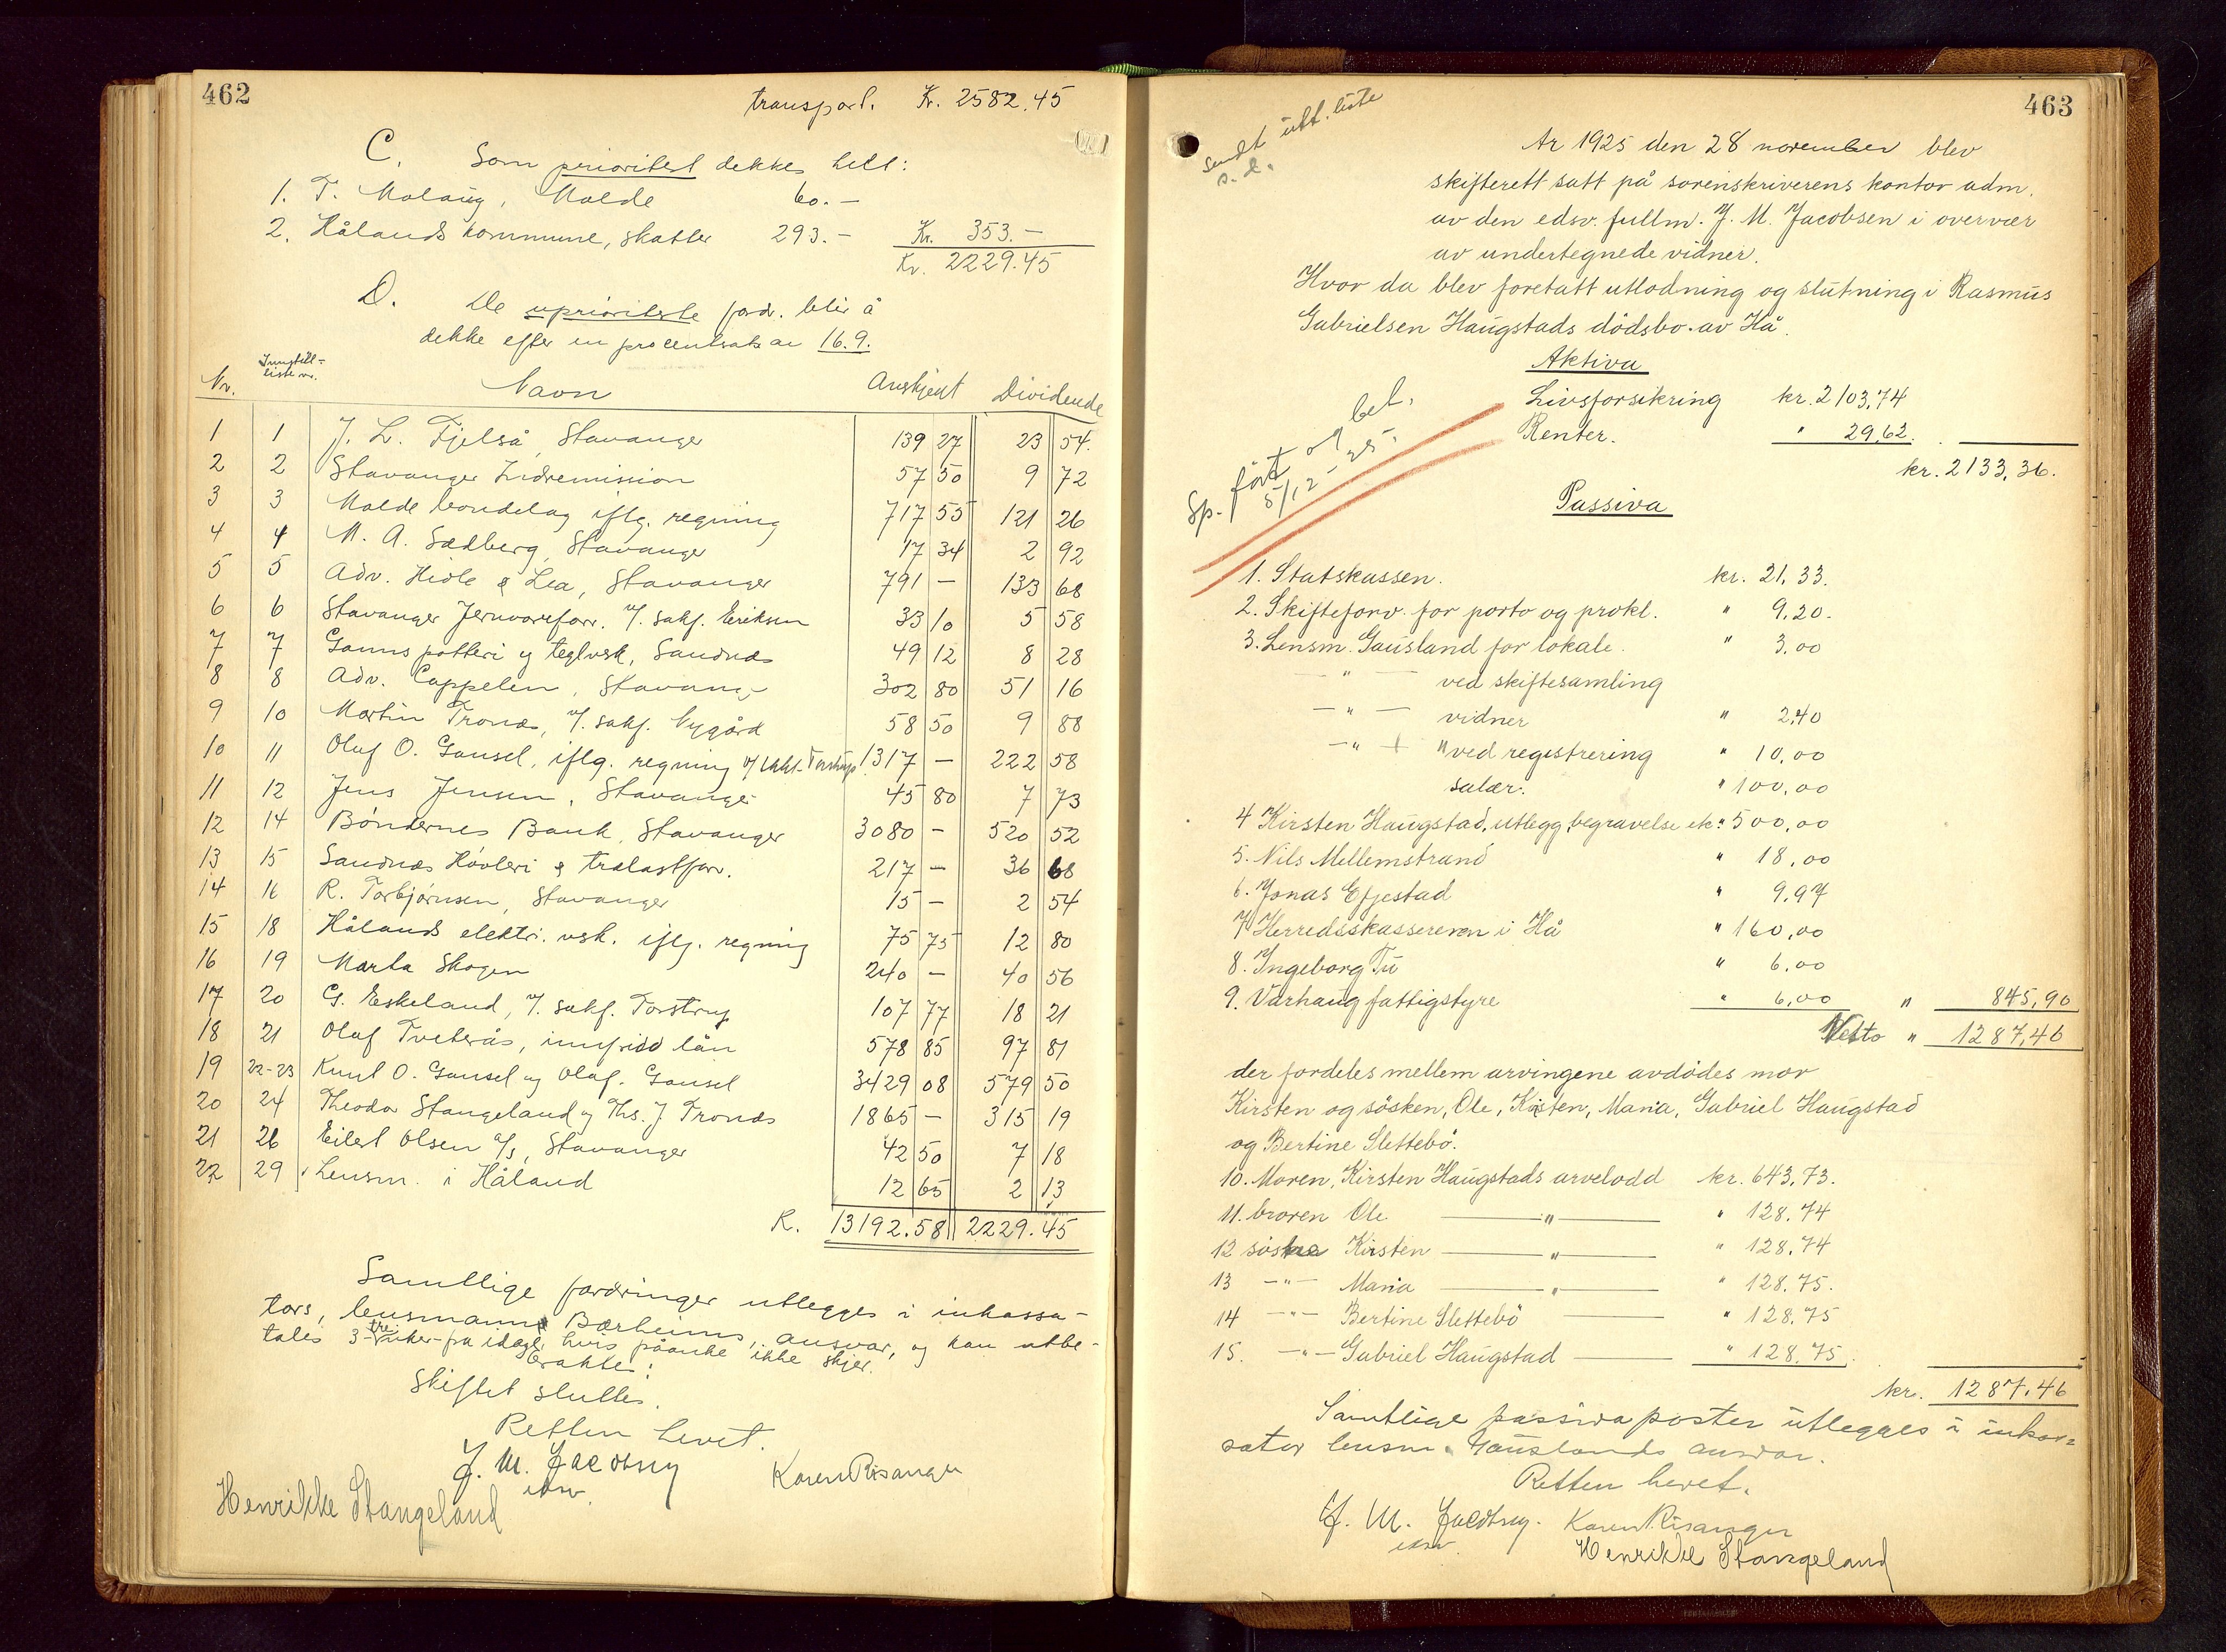 462
transport. Kr. 2582.45
C. Som prioritert dekkes helt:
1. T. Malaug, Malde 60.-
2. Hålands kommune, skatter 293.- Kr. 353.-
Kr. 2229.45
D. De uprioriterte ford. blir å
dekke efter en procentsats av 16.9.
Nr. Innstill-liste nr. Navn Anskjent Dividende
1 1 J. L. Fjelså, Stavanger 139 27 23 54.
2 2 Stavanger Indremission 57 50 9 72
3 3 Malde bondelag iflg. regning 717 55 121 26
4 4 M. A. Sædberg, Stavanger 17 34 2 92
5 5 Adv. Hidle & Lea, Stavanger 791 - 133 68
6 6 Stavanger Jernvareforr. v/ sakf. Eriksen 33 10 5 58
7 7 Ganns potteri og teglvsk, Sandnæs 49 12 8 28
8 8 Adv. Cappelen, Stavang- 302 80 51 16
9 10 Martin Tronæs, v/ sakf. Nygård 58 50 9 88
10 11 Oluf O. Gausel, iflg. regning v/ Torstrup 1317 - 222 58
11 12 Jens Jensen, Stavanger 45 80 7 73
12 14 Bøndernes Bank, Stavanger 3080 - 520 52
13 15 Sandnæs Høvleri & trælastforr. 217 - 36 68
14 16 R. Torbjørnsen, Stavanger 15 - 2 54
15 18 Hålands elektr. vsk. iflg. regning 75 75 12 80
16 19 Marta Skogen 240 - 40 56
17 20 G. Eskeland, v/ sakf. Torstrup 107 77 18 21
18 21 Olaf Tveterås, innfridd lån 578 85 97 81
19 22-23 Knut O. Gausel og Olaf. Gausel 3429 08 579 50
20 24 Theodor Stangeland og Ths. J Tronæs 1865 - 315 19
21 26 Eilert Olsen A/S, Stavanger 42 50 7 18
22 29 Lensm. i Håland 12 65 2 13
K. 13192.58 2229.45
Samtlige fordringer utlegges i inkassa-
tors, lensmann Bærheims, ansvar, og kan utbe-
tales 3-tre-uker fra idag, hvis påanke ikke skjer.
Skiftet sluttes.
Retten hevet.
J. M. Jacobsen
edsv.
Karen Risanger
Henrikke Stangeland
463
Sendt utl. liste
s. d.
År 1925 den 28 november blev
skifterett satt på sorenskriverens kontor adm.
av den edsv. fullm. J. M. Jacobsen i overvær
av undertegnede vidner.
Hvor da blev foretatt utlodning og slutning i Rasmus
Gabrielsen Haugstads dödsbo av Hå.
Aktiva
Livsforsikring kr. 2103,74
Renter. " 29,62.
kr. 2133,36.
Sp. ført og bet.
5/12-25.
Passiva
1. Statskassen. kr. 21,33.
2. Skifteforv. for porto og prokl. " 9,20.
3. Lensm. Gausland for lokale. " 3,00
- " - ved skiftesamling
- " - vidner " 2,40
- " - " ved registrering " 10,00
salær. " 100,00
4 Kirsten Haugstad, utlegg, begravelse etc. " 500,00
5. Nils Mellemstrand " 18,00
6. Jonas Efjestad " 9,97
7. Herredskassereren i Hå " 160,00
8. Ingeborg Tu " 6,00
9. Varhaug fattigstyre " 6,00 " 845,90
Netto " 1287,46
der fordeles mellem arvingene avdödes mor
Kirsten og søsken, Ole, Kirsten, Maria, Gabriel Haugstad
og Bertine Slettebö.
10. Moren, Kirsten Haugstads arvelodd kr. 643,73.
11. broren Ole - " - " 128,74
12 søstre Kirsten - " - " 128,74
13 - " - Maria - " - " 128,75.
14 - " - Bertine Slettebö - " 128,75
15. - " - Gabriel Haugstad - " 128,75.
kr. 1287,46
Samtlige passiva poster utlegges i inkas=
sator lensm. Gauslands ansvar.
Retten hevet.
J. M. Jacobsen.
edsv.
Karen Risanger
Henrikke Stangeland